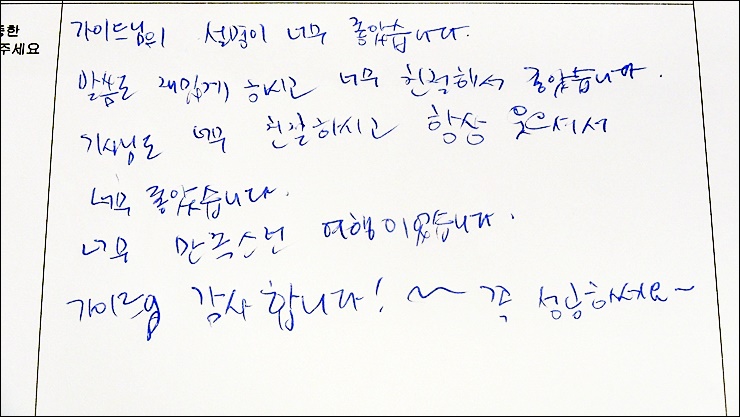 등한
주세요
가이드님의 설명이 너무 좋았습니다.
말씀도 재밌게 하시고 너무 친절해서 좋았습니다.
기사님도 너무 친절하시고 항상 웃으셔서
너무 좋았습니다.
너무 만족스런 여행이었습니다.
가이드님 감사합니다! ~ 꼭 성공하세요~